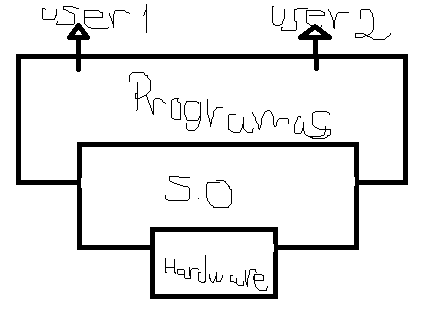 user 1 user 2
Programas
S.O
Hardware